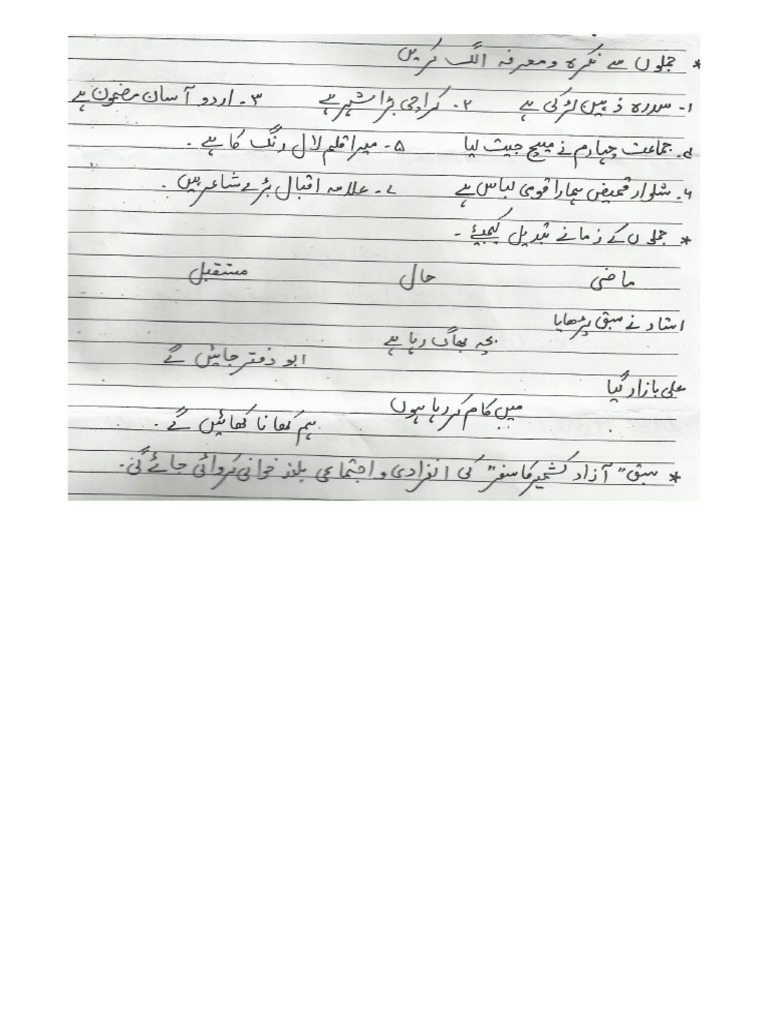 * جملوں سے نکرہ و معرفہ الگ کریں
۱۔ سدرہ ذہین لڑکی ہے ۲۔ کراچی بڑا شہر ہے ۳۔ اردو آسان مضمون ہے
۴۔ جماعت چہارم نے میچ جیت لیا ۵۔ میرا قلم لال رنگ کا ہے ۔
۶۔ شلوار قمیض ہمارا قومی لباس ہے ۷۔ علامہ اقبال بڑے شاعر ہیں ۔
* جملوں کے زمانے تبدیل کیجیئے ۔
ماضی حال مستقبل
استاد نے سبق پڑھایا
بچہ بھاگ رہا ہے
ابو دفتر جائیں گے
علی بازار گیا
میں کام کر رہا ہوں
ہم کھانا کھائیں گے ۔
* سبق "آزاد کشمیر کا سفر" کی انفرادی و اجتماعی بلند خوانی کروائی جائے گی ۔